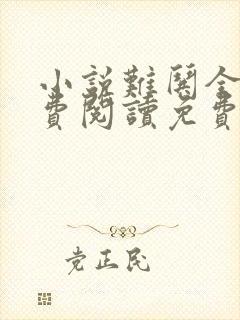 小説難閱全
費閱讀免費
党正民